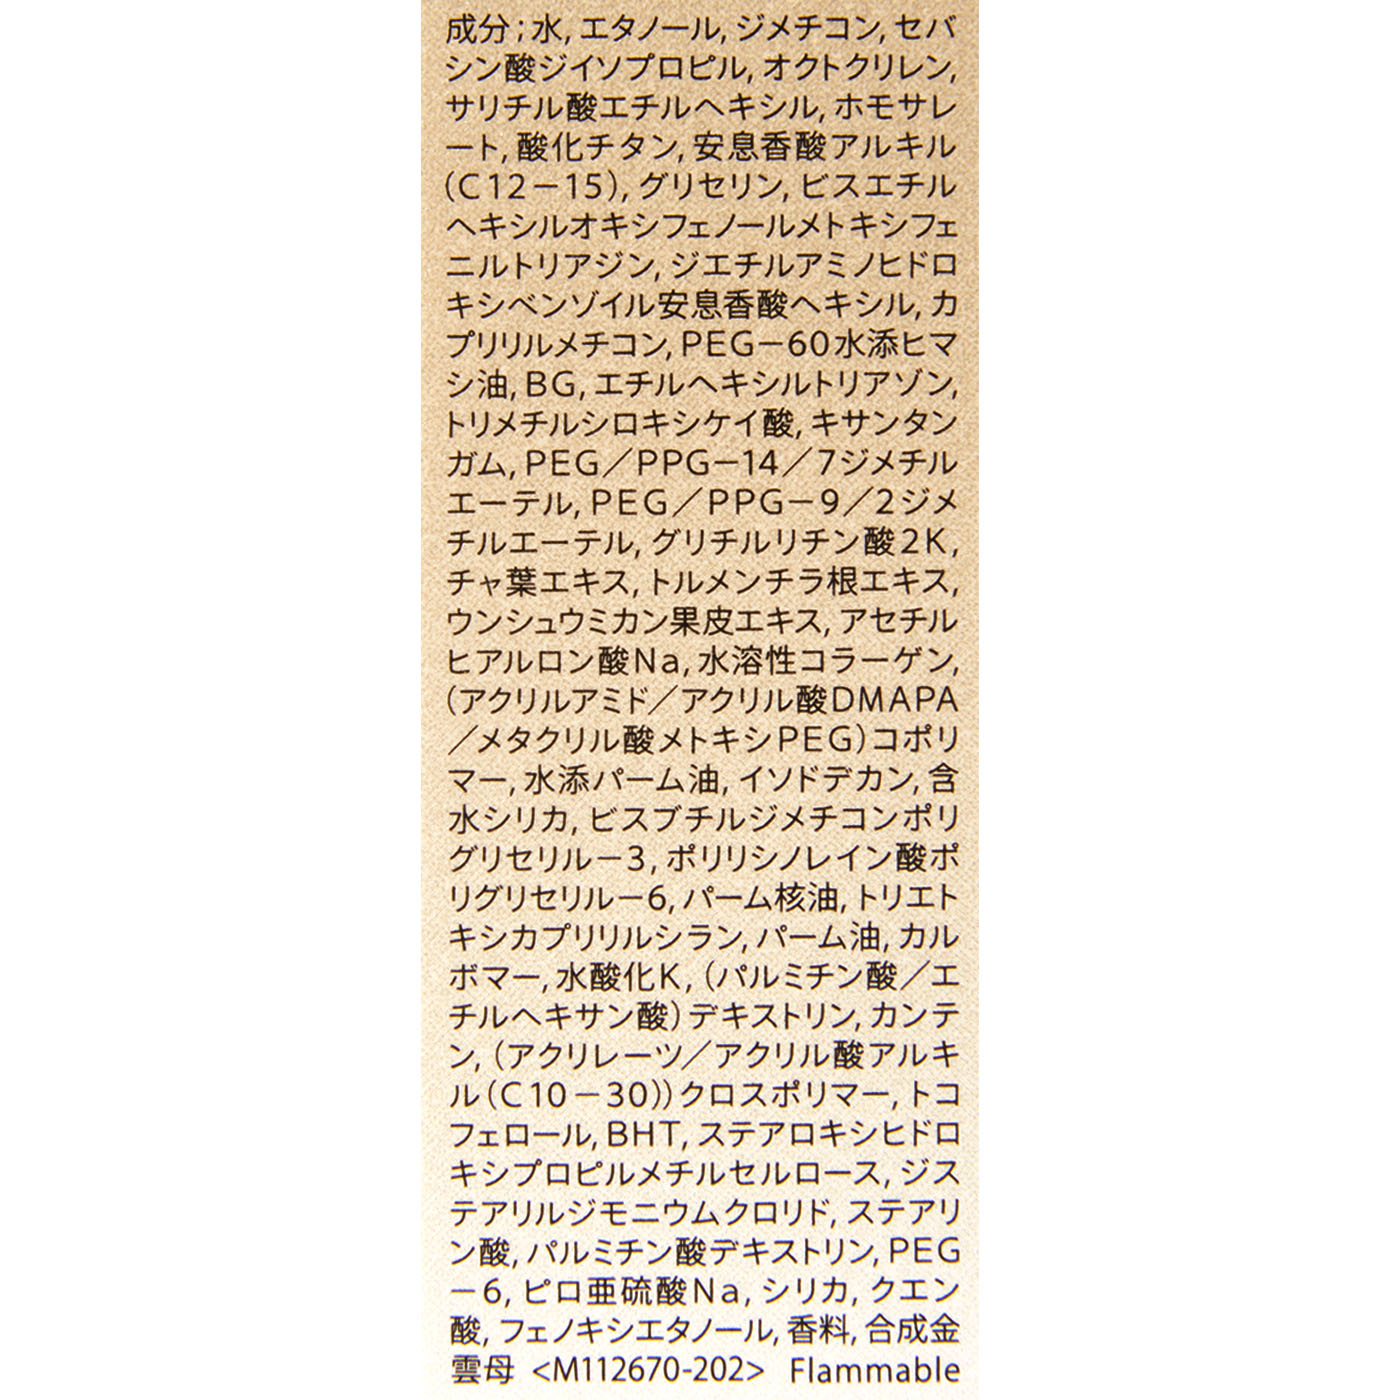 成分;水, エタノール, ジメチコン, セバ
シン酸ジイソプロピル, オクトクリレン,
サリチル酸エチルヘキシル, ホモサレ
ート, 酸化チタン, 安息香酸アルキル
(C12－15), グリセリン, ビスエチル
ヘキシルオキシフェノールメトキシフェ
ニルトリアジン, ジエチルアミノヒドロ
キシベンゾイル安息香酸ヘキシル, カ
プリリルメチコン, PEG－60水添ヒマ
シ油, BG, エチルヘキシルトリアゾン,
トリメチルシロキシケイ酸, キサンタン
ガム, PEG／PPG－14／7ジメチル
エーテル, PEG／PPG－9／2ジメ
チルエーテル, グリチルリチン酸2K,
チャ葉エキス, トルメンチラ根エキス,
ウンシュウミカン果皮エキス, アセチル
ヒアルロン酸Na, 水溶性コラーゲン,
(アクリルアミド／アクリル酸DMAPA
／メタクリル酸メトキシPEG)コポリ
マー, 水添パーム油, イソドデカン, 含
水シリカ, ビスブチルジメチコンポリ
グリセリル－3, ポリリシノレイン酸ポ
リグリセリル－6, パーム核油, トリエト
キシカプリリルシラン, パーム油, カル
ボマー, 水酸化K, (パルミチン酸／エ
チルヘキサン酸)デキストリン, カンテ
ン, (アクリレーツ／アクリル酸アルキ
ル(C10－30))クロスポリマー, トコ
フェロール, BHT, ステアロキシヒドロ
キシプロピルメチルセルロース, ジス
テアリルジモニウムクロリド, ステアリ
ン酸, パルミチン酸デキストリン, PEG
－6, ピロ亜硫酸Na, シリカ, クエン
酸, フェノキシエタノール, 香料, 合成金
雲母 <M112670-202> Flammable